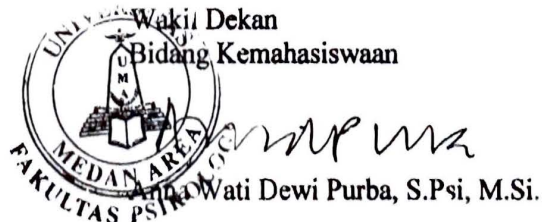 Wakil Dekan
Bidang Kemahasiswaan
UNIVERSITAS
UMA
MEDAN AREA
FAKULTAS PSIKOLOGI
Wati Dewi Purba, S.Psi, M.Si.